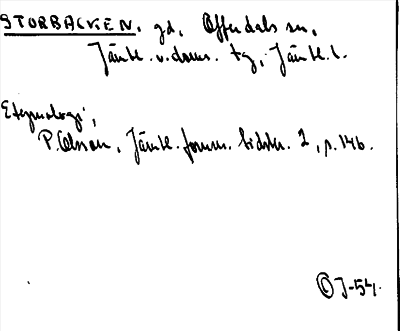 STORBACKEN, gd, Offerdals sn,
Jämtl. v. doms. tg, Jämtl. l.
Etymologi,
P. Olsson, Jämtl. fornm. tidskr. 2, s. 146.
J-54.